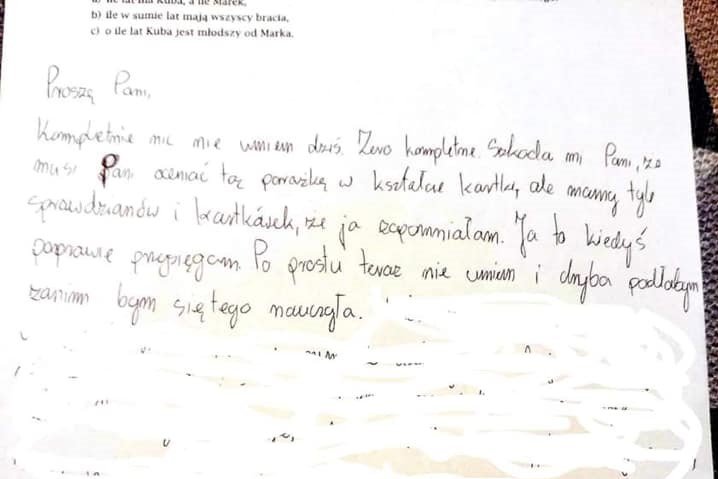 a) ile lat ma Kuba, a ile Marek,
b) ile w sumie lat mają wszyscy bracia,
c) o ile lat Kuba jest młodszy od Marka.
Proszę Pani,
Kompletnie nic nie umiem dziś. Zero kompletne. Szkoda mi Pani, że
musi Pani oceniać tą porażkę w kształcie kartki, ale mamy tyle
sprawdzianów i kartkásek, że ja zapomniałam. Ja to kiedyś
poprawię przysięgam. Po prostu teraz nie umiem i chyba padłabym
zanim bym się tego nauczyła.